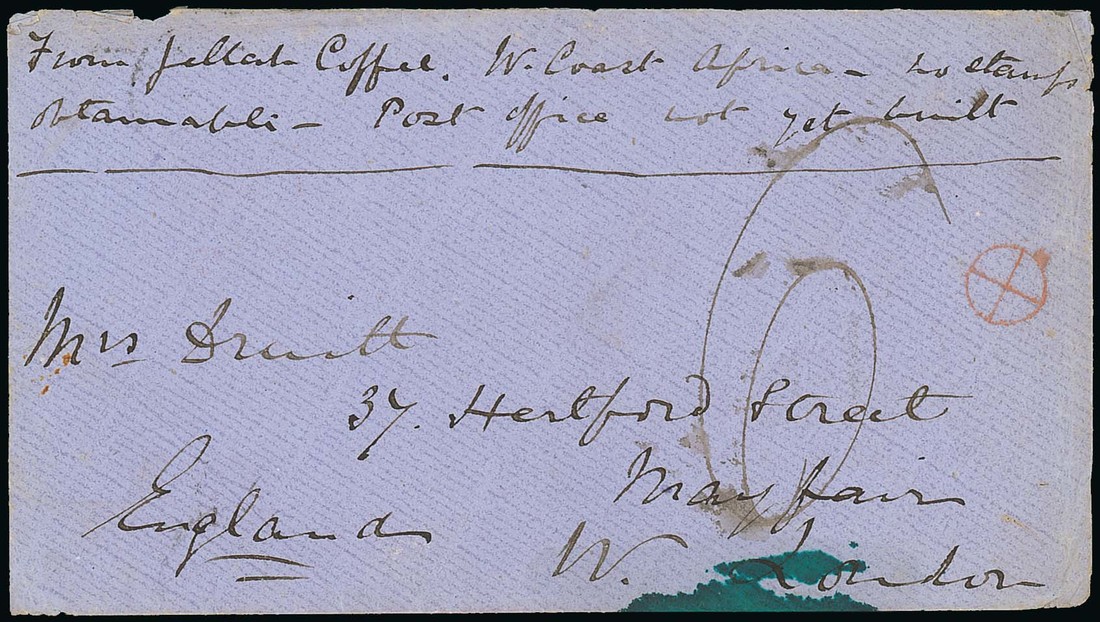 From Jellah Coffee. W. Coast Africa - no stamps
obtainable - Post office not yet built
6
Mrs Druitt
37. Hertford Street
Mayfair
England
W. London